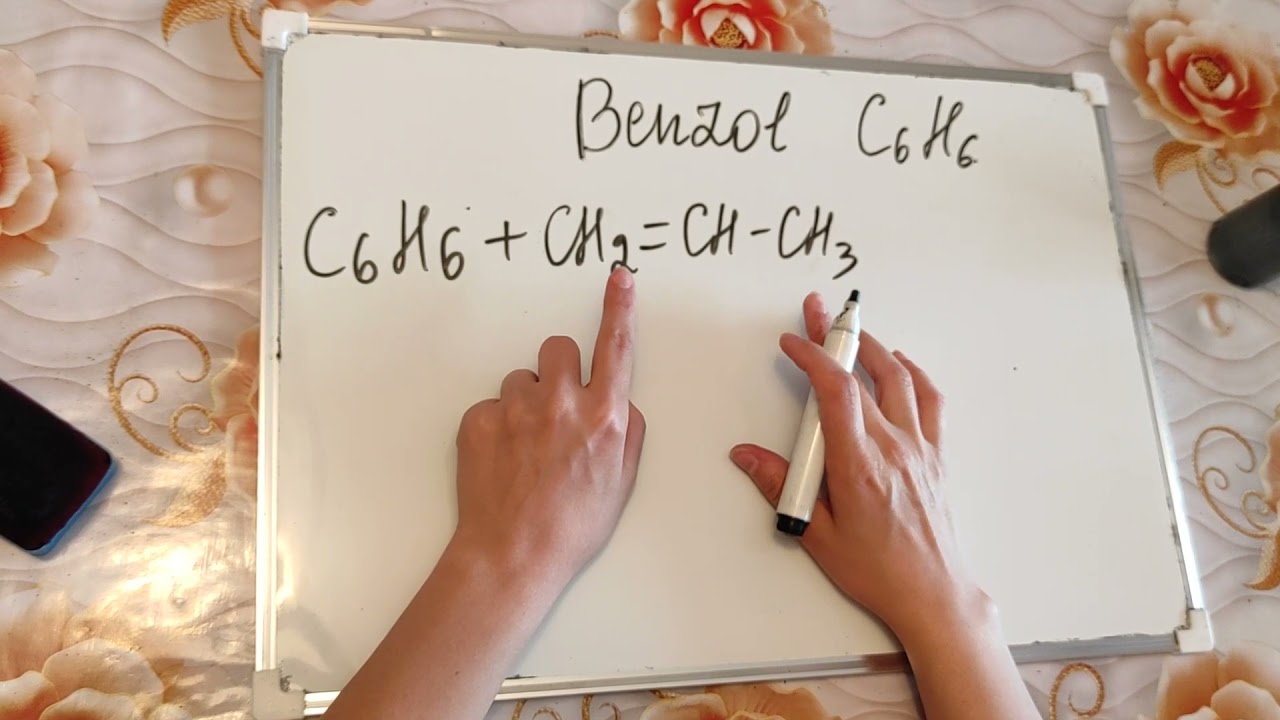 Benzol C₆H₆
C₆H₆ + CH₂ = CH - CH₃